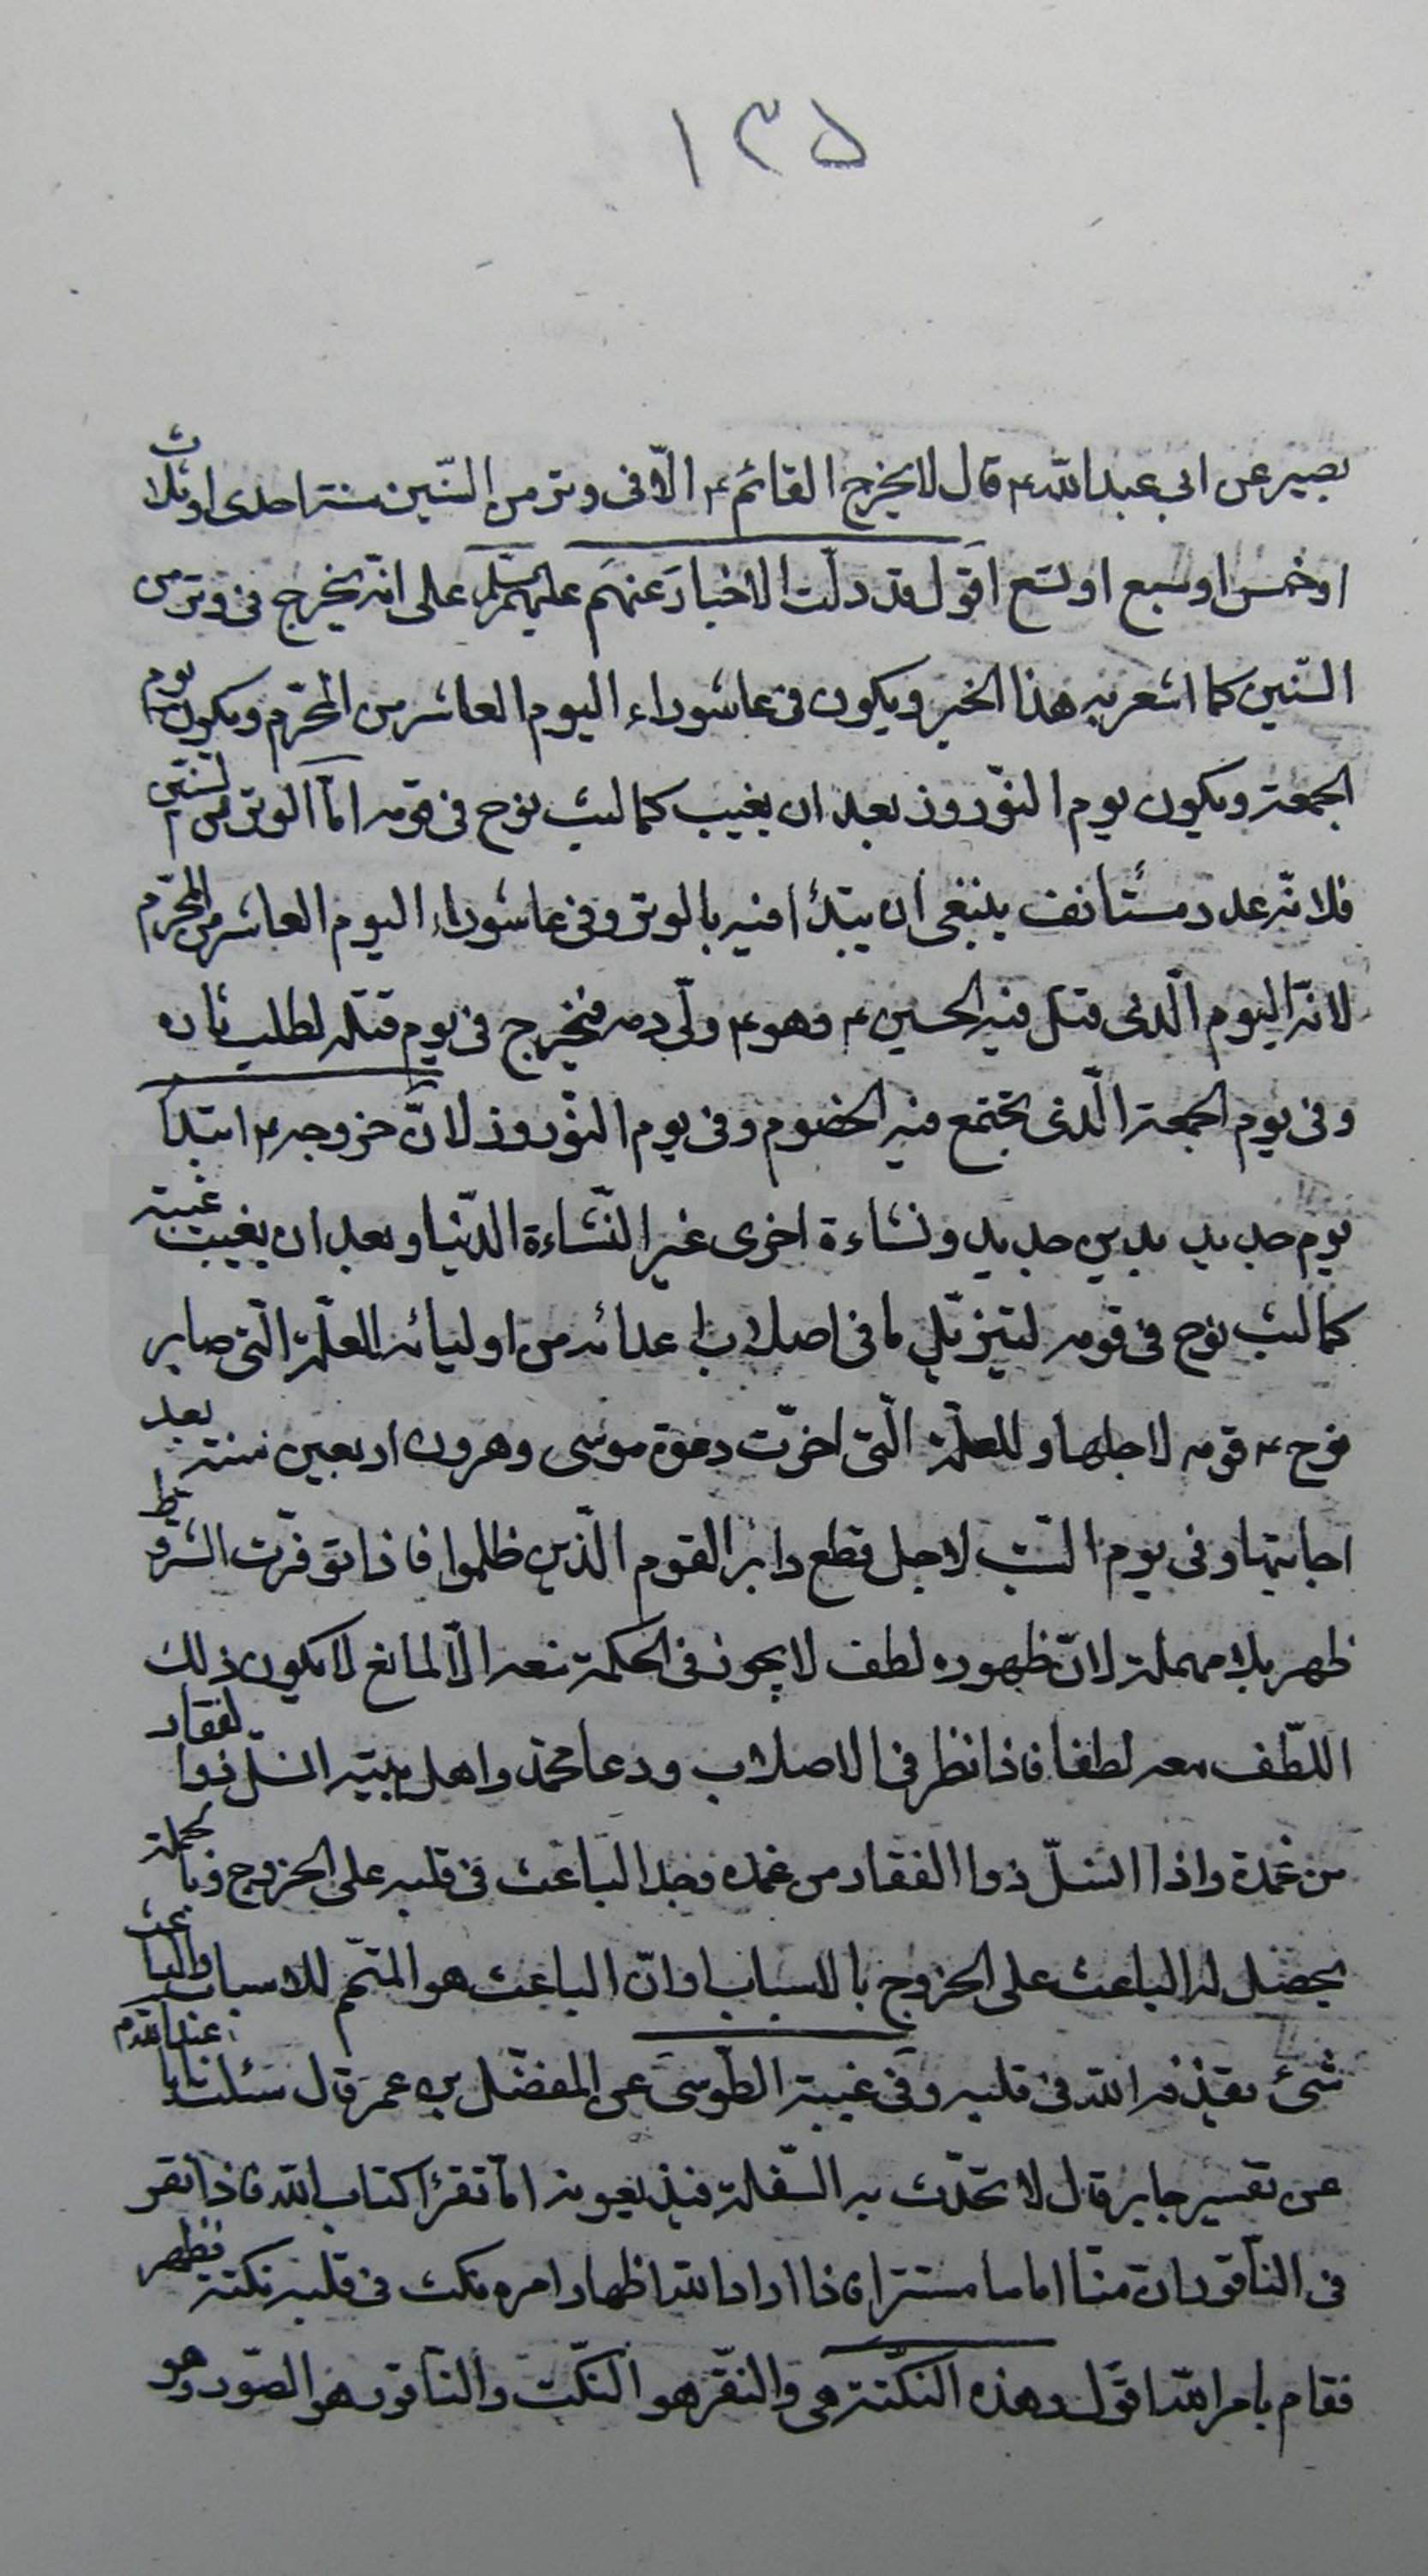 ١٣٥
بصير عن ابى عبد الله ع قال لا يخرج القائم ع الّا فى وتر من السّنين سنة احدى او ثلاث
او خمس او سبع او تسع اقول قد دلّت الاخبار عنهم عليهم السّلم على انّه يخرج فى وتر من
السّنين كما اشعر به هذا الخبر ويكون فى عاشوراء اليوم العاشر من المحرّم ويكون يوم
الجمعة ويكون يوم النّوروز بعد ان يغيب كما لبث نوح فى قومه امّا الوتر من السّنين
فلانّه عدد مستأنف ينبغى ان يبتدأ فيه بالوتر وفى عاشوراء اليوم العاشر من المحرّم
لانّه اليوم الّذى قتل فيه الحسين ع وهو ع ولّى دمه فيخرج فى يوم قتله لطلب ثاره
وفى يوم الجمعة الّذى تجتمع فيه الخصوم وفى يوم النّوروز لانّ خروجه ع ابتدا
يوم جديد بدين جديد ونشاءة اخرى غير النّشاءة الدّنيا وبعد ان يغيب غيبته
كما لبث نوح فى قومه لتيزيّل ما فى اصلاب اعدائه من اوليائه للعلّة الّتى صابر
نوح ع قومه لاجلها وللعلّة الّتى اخّرت دعوة موسى وهرون اربعين سنة بعد
اجابتها وفى يوم السّبت لاجل قطع دابر القوم الّذين ظلموا فاذا توفّرت الشّروط
ظهر بلا مهملة لانّ ظهوره لطف لا يجوز فى الحكمة منعه الّا لمانع لا يكون ذلك
اللّطف معه لطفا فاذا نظر فى الاصلاب ودعا محمّد واهل بيته انسلّ ذوا لفقار
من غمدة واذا انسلّ ذوا الفقار من غمده وجد الباعث فى قلبه على الخروج وبالجملة
يحصل له الباعث على الخروج بالاسباب وانّ الباعث هو المتمّم للاسباب والباعث
شئ يقذفه الله فى قلبه وفى غيبة الطّوسى عن المفضّل بن عمر قال سئلت ابا عبد الله ع
عن تفسير جابر قال لا تحدّث به السّفلة فيذيعونه اما تقرأ كتاب الله فاذا نقر
فى النّاقور انّ منّا اماما مستترا فاذا اراد الله اظهار امره نكت فى قلبه نكتة فظهر
فقام بامر الله اقول وهذه النّكتة هى والنّقر هو النّكت والنّاقور هو الصّور وهو